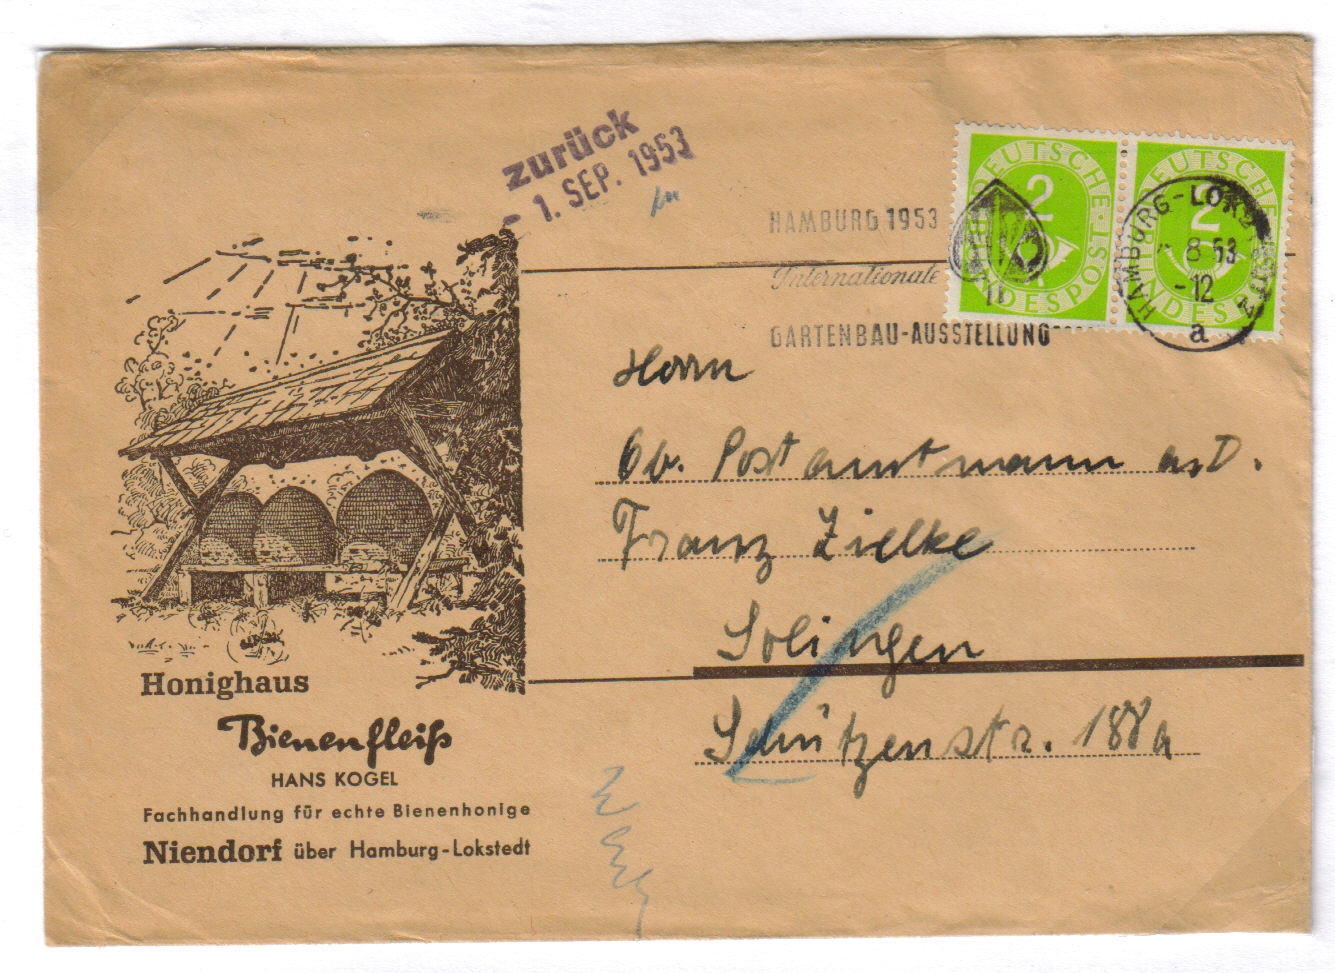 zurück
- 1. SEP. 1953
HAMBURG 1953
Internationale
GARTENBAU-AUSSTELLUNG
DEUTSCHE
2
BUNDESPOST
DEUTSCHE
2
BUNDES
HAMBURG-LOKSTEDT
8 53
-12
a
Herrn
Ob. Postamtmann a.D.
Franz Zielke
Solingen
Schützenstr. 188a
Honighaus
Bienenfleiß
HANS KOGEL
Fachhandlung für echte Bienenhonige
Niendorf über Hamburg-Lokstedt